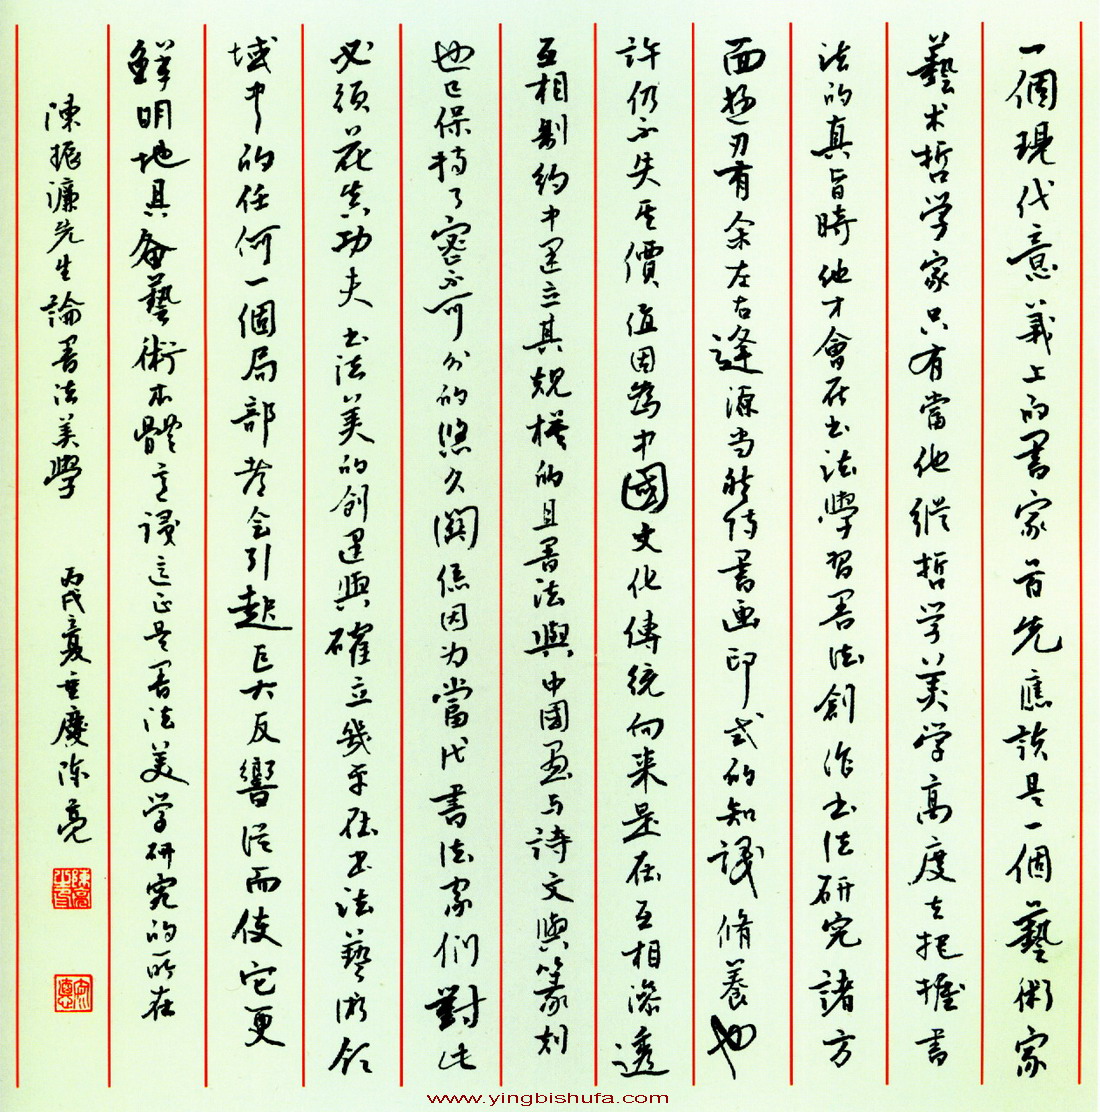 一個現代意義上的書家首先應該是一個藝術家
藝术哲学家只有當他從哲学美学高度去把握書
法的真旨時他才會在书法學習書法創作书法研究諸方
面遊刃有余左右逢源当然诗書画印式的知識修養也
許仍不失其價值因為中國文化傳统向来是在互相滲透
互相制約中建立其规模的且書法與中國画与詩文與篆刻
也已保持了密不可分的悠久関係因为當代書法家們對此
必须花真功夫书法美的创建與確立幾乎在书法藝術領
域中的任何一個局部都会引起巨大反響從而使它更
鮮明地具备藝術本體意識這正是書法美学研究的所在
陳振濂先生論書法美學 丙戌夏重慶陈亮
www.yingbishufa.com